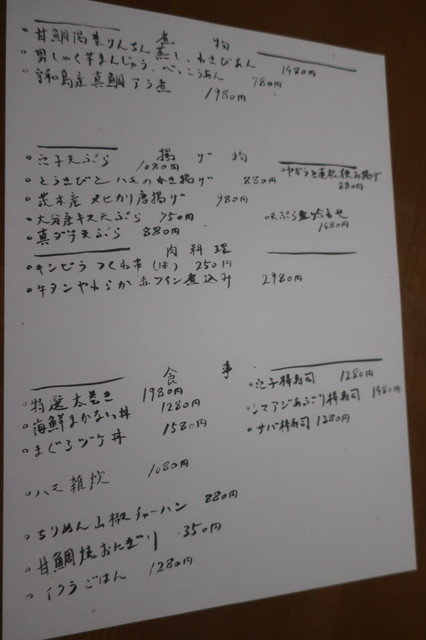 煮物
甘鯛湯葉りんさん蒸し わさびあん 1480円
男しゃく芋まんじゅう べっこうあん 780円
宇和島産真鯛アラ煮 1980円
揚げ物
穴子天ぷら 1080円
とうきびとハモのかき揚げ 880円
メヒカリ唐揚げ 980円
大分産キス天ぷら 750円
真ダチ天ぷら 880円
揚げ
天ぷら盛合わせ 1480円
肉料理
キンピラつくね串(1本) 250円
牛タンやわらか赤ワイン煮込み 2980円
食事
特選太巻き 1980円
海鮮まかない丼 1280円
まぐろヅケ丼 1580円
ハモ雑炊 1080円
ちりめん山椒チャーハン 880円
甘鯛焼おにぎり 350円
イクラごはん 1280円
穴子棒寿司 1280円
シマアジあぶり棒寿司 1480円
サバ棒寿司 1380円